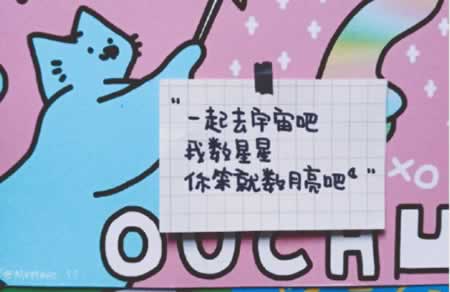 “一起去宇宙吧
我数星星
你笨就数月亮吧”
XO
OUCH